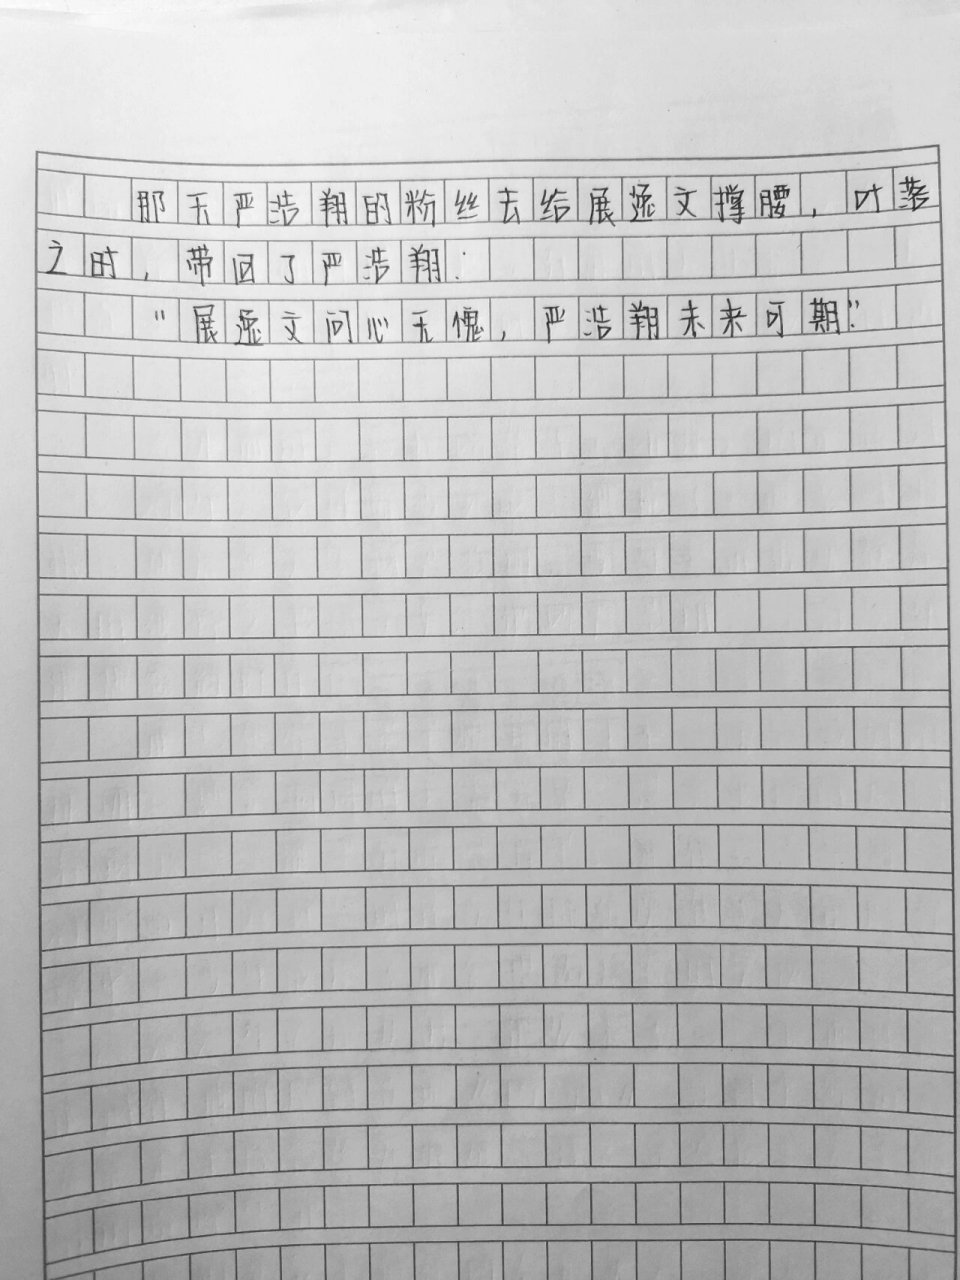 那天严浩翔的粉丝去给展逸文撑腰，叶落
之时，带回了严浩翔：
“展逸文问心无愧，严浩翔未来可期”